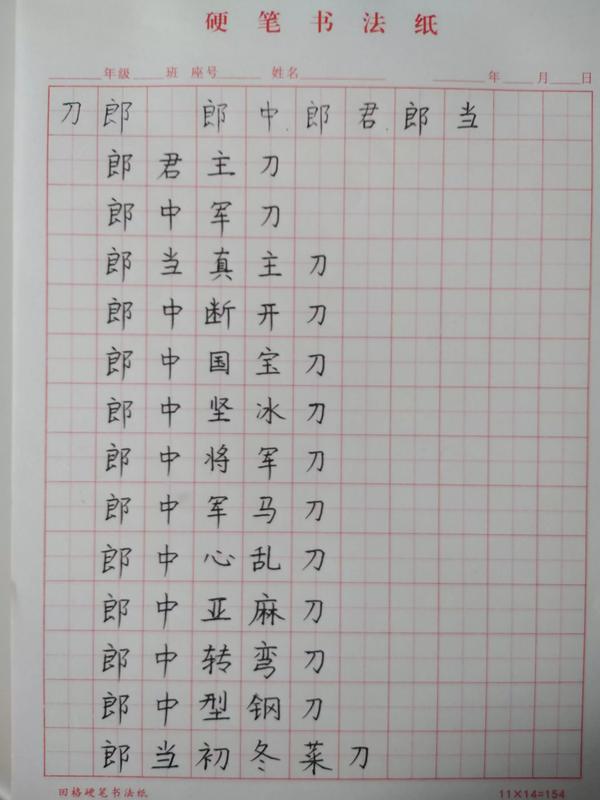 硬笔书法纸
年级 班 座号 姓名 年 月 日
刀郎 郎中郎君郎当
郎君主刀
郎中军刀
郎当真主刀
郎中断开刀
郎中国宝刀
郎中坚冰刀
郎中将军刀
郎中军马刀
郎中心乱刀
郎中亚麻刀
郎中转弯刀
郎中型钢刀
郎当初冬菜刀
田格硬笔书法纸 11×14=154